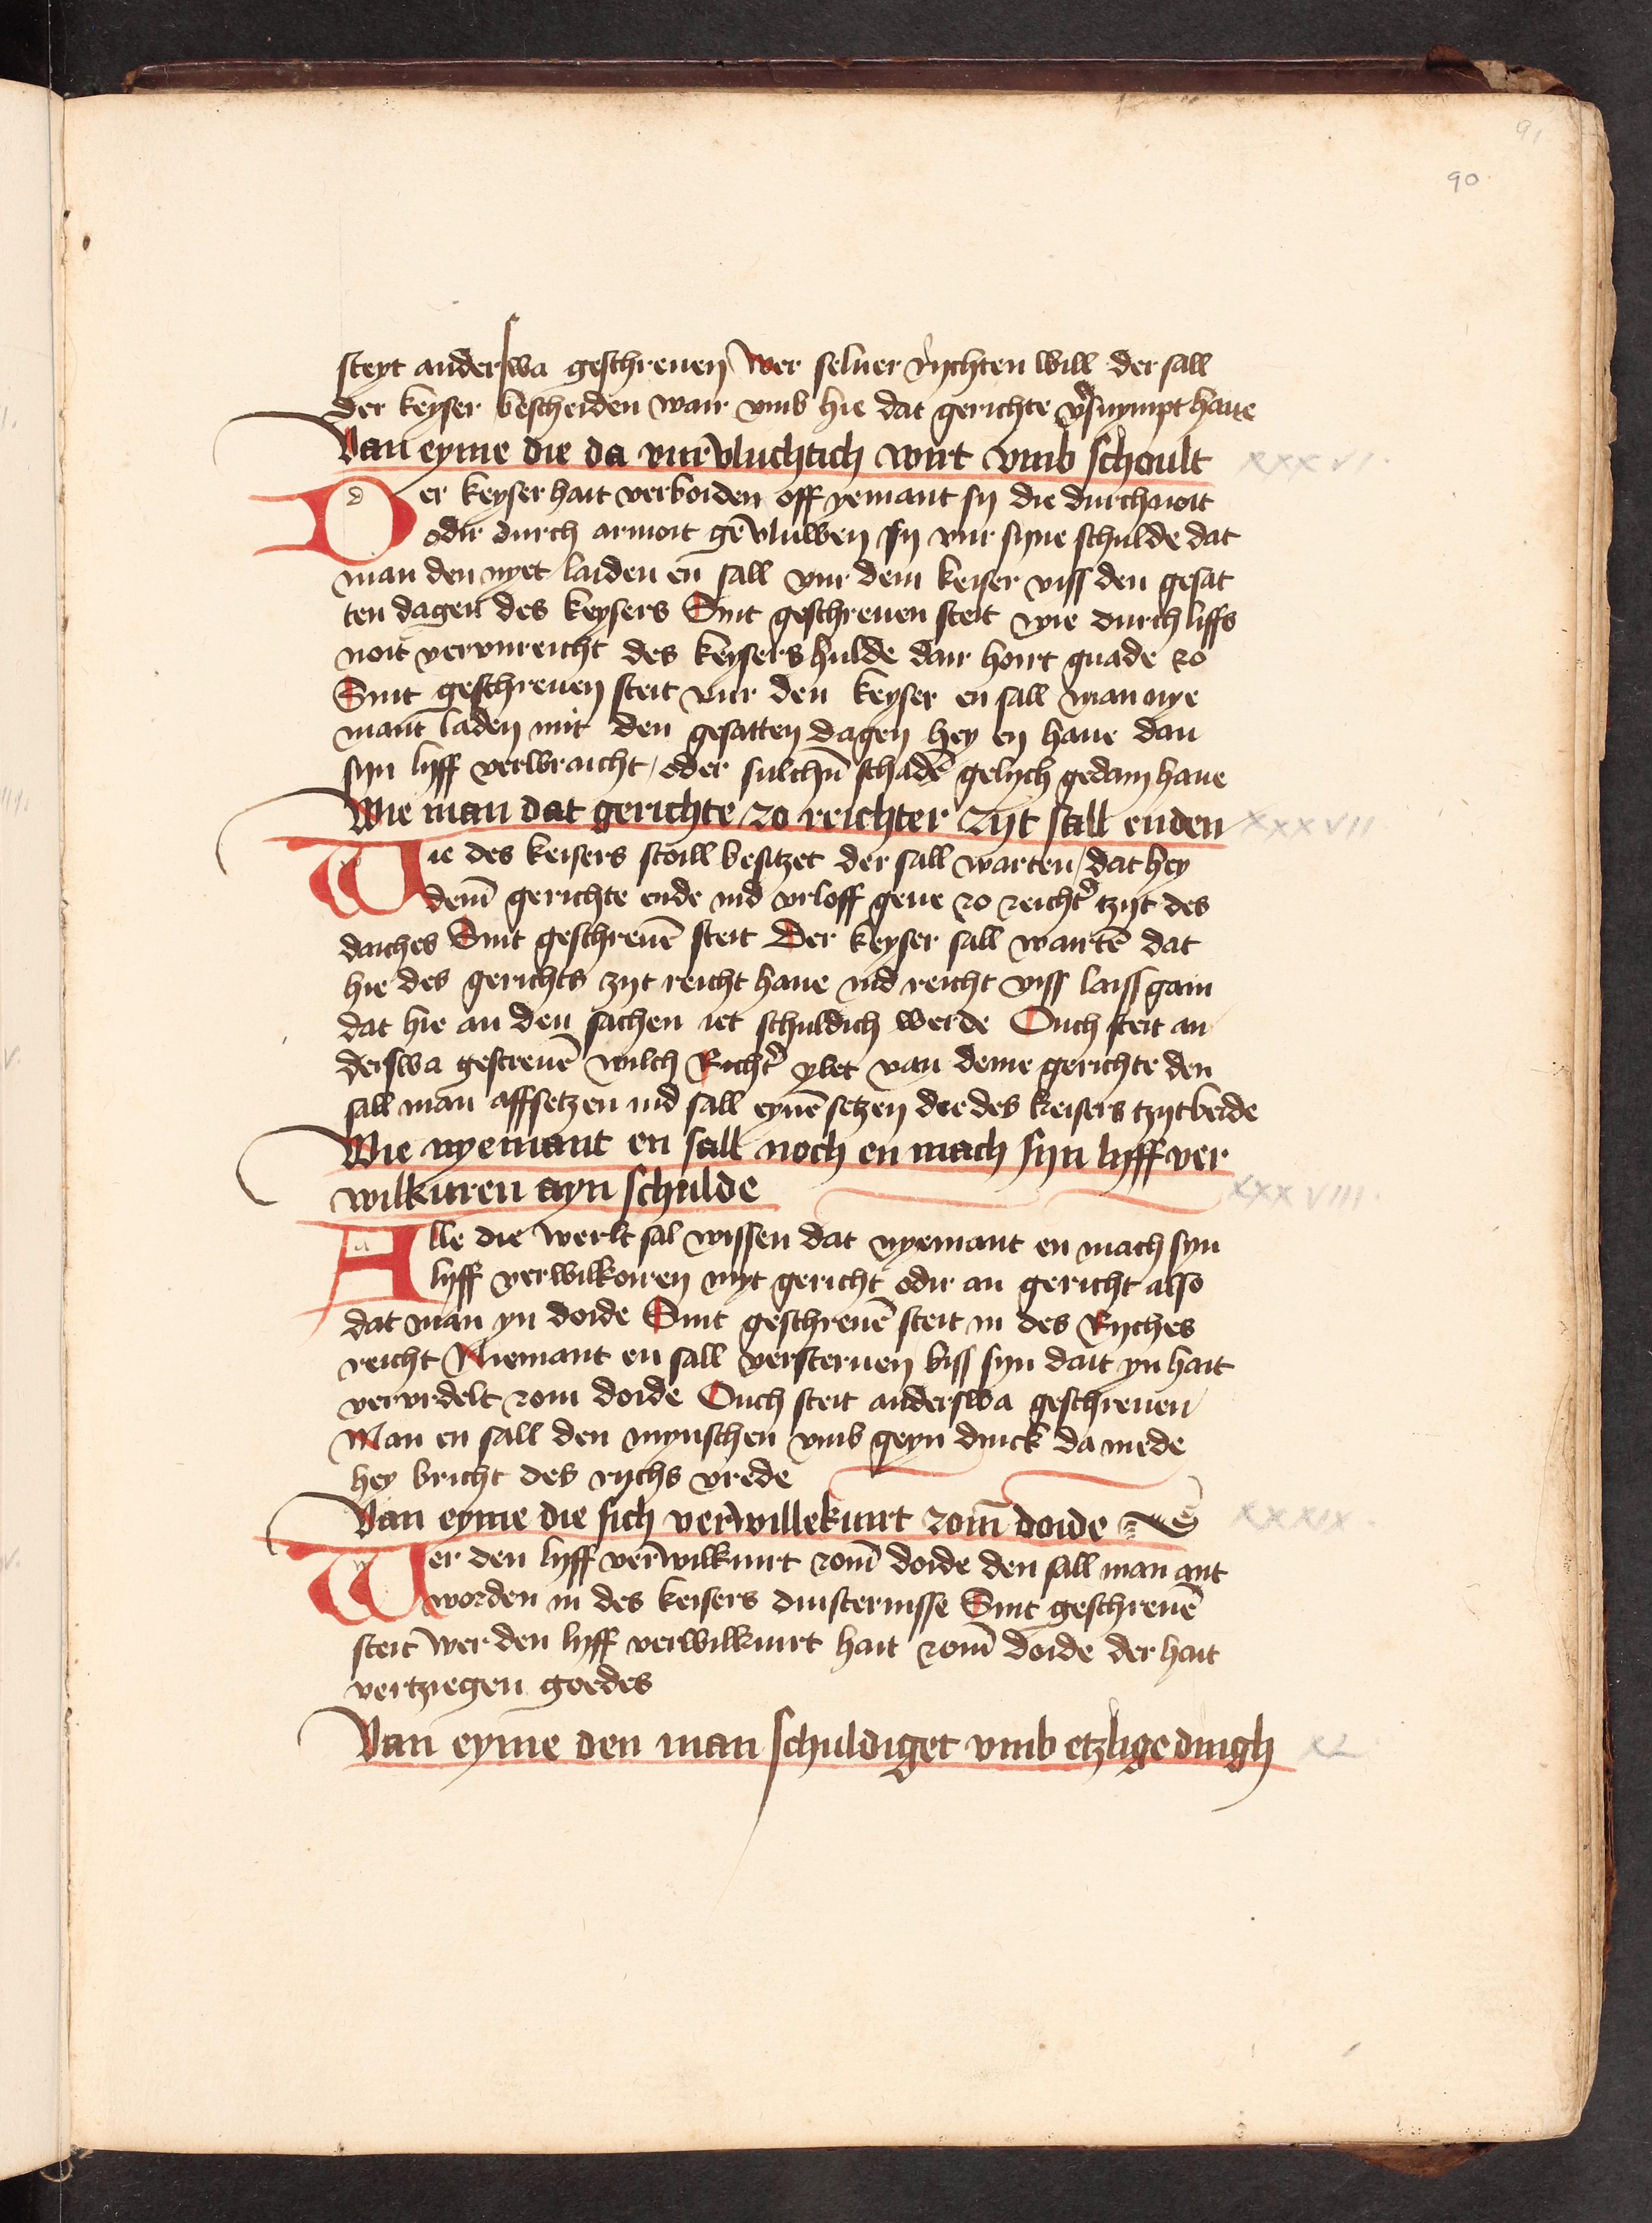 91
90
steyt anderswa geschreuen Wer seluer rychten will der sall
der keyser bescheiden wair vmb hie dat gerichte v̉suympt haue
Van eyme die da vur vluchtich wirt vmb schoult XXXVI.
Der keyser hait verboiden off yemant sy die durch noit
odir durch armoit gēvluwen sy vur syne schulde dat
man den nyet laiden en sall vur dem keiser viss den gesat
ten dagen des keysers Sint geschreuen steit wie durch liffs
noit vervnreicht des keysers hulde dair hoirt gnade zo
Sint geschreuen steit vur den keyser en sall man nye
mant laden mit den gesatten dagen hey en haue dan
syn lyff verwraicht / oder sulchn̄ schadē gelych gedain haue
Wie man dat gerichte zo reichter zijt sall enden XXXVII
Wie des keisers stoill besitzet der sall warten / dat hey
dem̄ gerichte ende ind vrloff geue zo reicht̉ tzijt des
daiches Sint geschreuē steit Der keyser sall wartē dat
hie des gerichts zijt reicht haue ind reicht viss laiss gain
dat hie an den sachen iet schuldich werde Ouch steit an
derswa gescreuē wilch Richt̉ ylet van deme gerichte den
sall man affsetzen ind sall eynē setzen die des keisers tzijt beide
Wie nyemant en sall noch en mach syn lyff ver
wilkuren ayn schulde XXXVIII.
Alle die werlt sal wissen dat nyemant en mach syn
lyff verwilkoiren myt gericht odir an gericht also
dat man yn doide Sint geschreuē steit in des Ryches
reicht Niemant en sall versteruen biss syn dait yn hait
vervrdelt zom doide Ouch steit anderswa geschreuen
Man en sall den mynschen vmb geyn dinck da mede
hey bricht des rychs vrede
Van eyme die sich verwillekuirt zom̄ doide XXXIX.
Wer den lyff verwilkuirt zom̄ doide den sall man ant
worden in des keisers duisternisse Sint geschreuē
steit Wer den lyff verwilkuirt hait zom̄ doide der hait
vertziegen goedes
Van eyme den man schuldiget vmb etzlige dingh XL